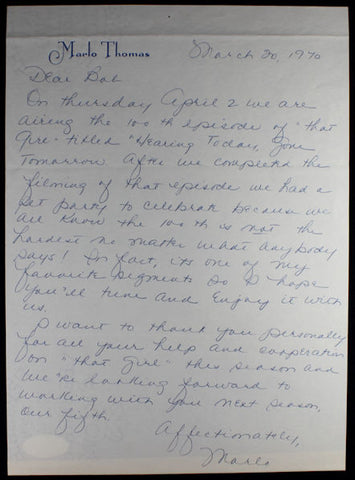 Marlo Thomas
March 20, 1970
Dear Bob
On Thursday, April 2 we are
airing the 100th episode of "That
Girl" titled "Hearing Today, Gone
Tomorrow. After we completed the
filming of that episode we had a
set party to celebrate because we
all know the 100th is not the
hardest no matter what anybody
says! In fact, its one of my
favorite segments so I hope
you'll tune and enjoy it with
us.
I want to thank you personally
for all your help and cooperation
on "That Girl" this season and
we're looking forward to
working with you next season,
our fifth.
Affectionately,
Marlo